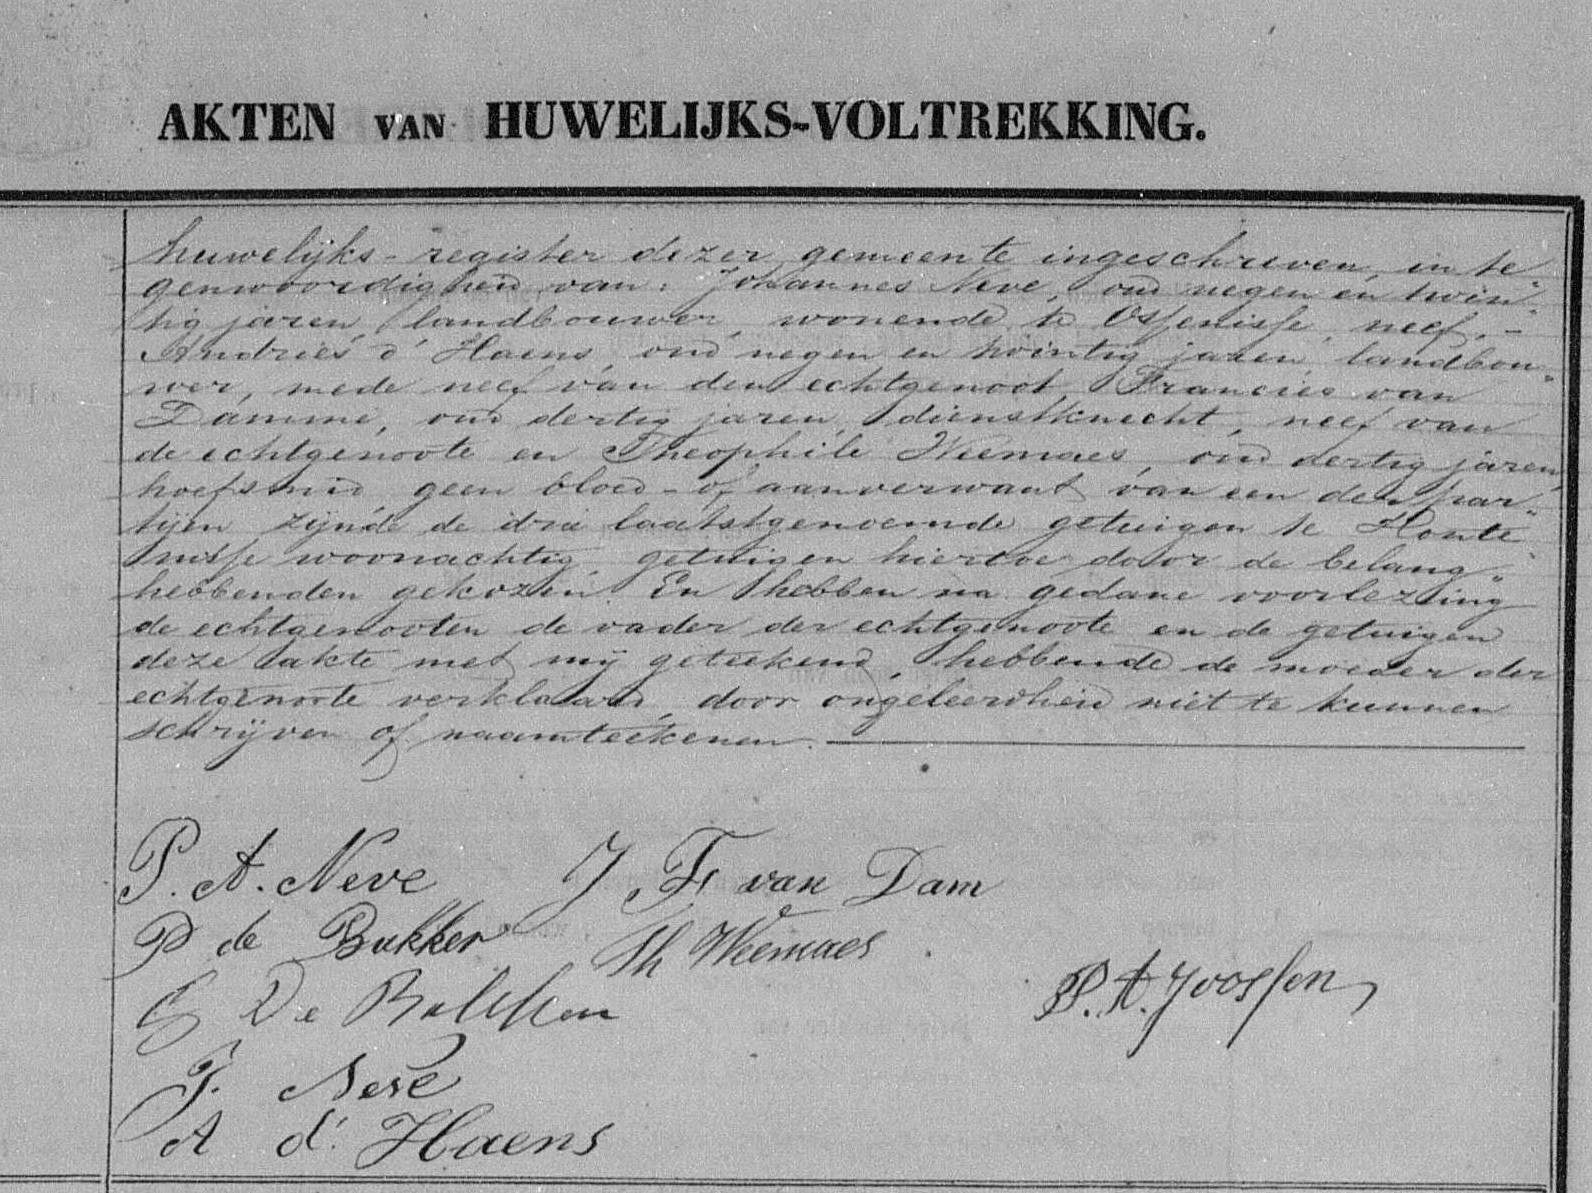 AKTEN VAN HUWELIJKS-VOLTREKKING.
huwelijks-register dezer gemeente ingeschreven, in te
genwoordigheid van: Johannes Neve, oud negen en twin„
tig jaren, landbouwer, wonende te Ossenisse, neef, –
Andries d'Haens, oud negen en twintig jaren, landbou„
wer, mede neef van den echtgenoot, Francies van
Damme, oud dertig jaren, dienstknecht, neef van
de echtgenoote en Theophile Weemaes, oud dertig jaren,
hoefsmid, geen bloed- of aanverwant van een der par„
tijen zijnde de drie laatstgenoemde getuigen te Honte„
nisse woonachtig, getuigen hiertoe door de belang„
hebbenden gekozen. En hebben na gedane voorlezing
de echtgenooten de vader der echtgenoote en de getuigen
deze akte met mij geteekend, hebbende de moeder der
echtgenoote verklaard, door ongeleerdheid niet te kunnen
schrijven of naamteekenen.
P. A. Neve J Fr van Dam
P de Bakker Th Weemaes
De P. A. Joossen
J. Neve
A d'Haens